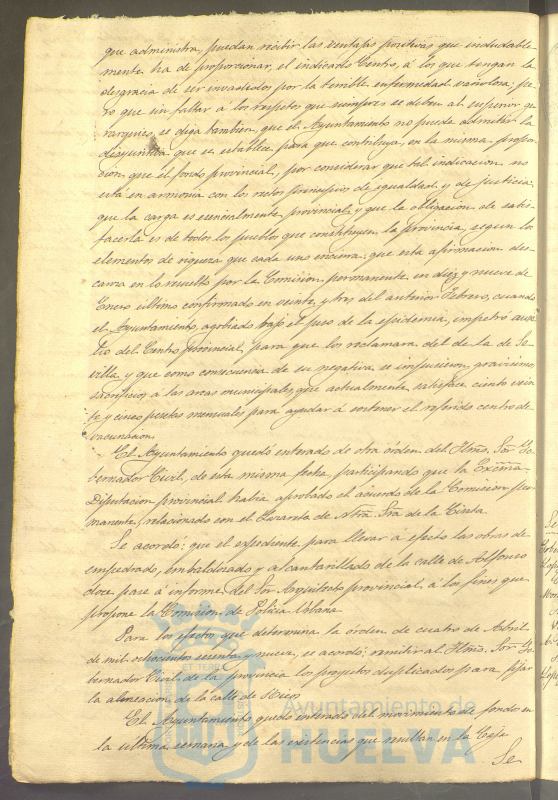 que administra, puedan recibir las ventajas positivas que indudable-
mente ha de proporcionar, el indicado Centro, á los que tengan la
desgracia de ser invadidos por la terrible enfermedad variolosa; pe-
ro que sin faltar á los respetos que siempre se deben al superior ge-
rarquico, se diga tambien que el Ayuntamiento no puede admitir la
disyuntiva que se establece para que contribuya, en la misma propor-
cion que el fondo provincial, por considerar que tal indicacion no
está en armonía con los rectos principios de igualdad y de justicia;
que la carga es esencialmente provincial, y que la obligacion de satis-
facerla es de todos los pueblos que constituyen la provincia, segun los
elementos de riqueza que cada uno encierra; que esta afirmacion des-
cansa en lo resuelto por la Comision permanente, en diez y nueve de
Enero último confirmado en veinte y tres del anterior Febrero, cuando
el Ayuntamiento, agobiado bajo el peso de la epidemia, impetró auxi-
lio del Centro provincial, para que los reclamara del de la de Se-
villa, y que como consecuencia de su negativa se impusieron gravísimos
sacrificios á las arcas municipales, que actualmente satisface ciento vein-
te y cinco pesetas mensuales para ayudar á sostener el referido centro de
vacunacion.
El Ayuntamiento quedó enterado de otra órden del Iltmo. Sor. Go-
bernador Civil, de esta misma fecha, participando que la Excma.
Diputacion provincial habia aprobado el acuerdo de la Comision per-
manente, relacionado con el Lazareto de Ntra. Sra. de la Cinta.
Se acordó: que el expediente para llevar a efecto las obras de
empedrado, embaldosado y alcantarillado de la calle de Alfonso
doce pase á informe del Sor. Arquitecto provincial, á los fines que
propone la Comision de Policia Urbana.
Para los efectos que determina la órden de cuatro de Abril
de mil ochocientos sesenta y nueve, se acordó: remitir al Iltmo. Sor. Go-
bernador Civil de la provincia los proyectos duplicados para fijar
la alineacion de la calle de
El Ayuntamiento quedó enterado del movimiento de fondos en
la última semana y de las existencias que resultan en la Caja.
Se
Ayuntamiento de
HUELVA